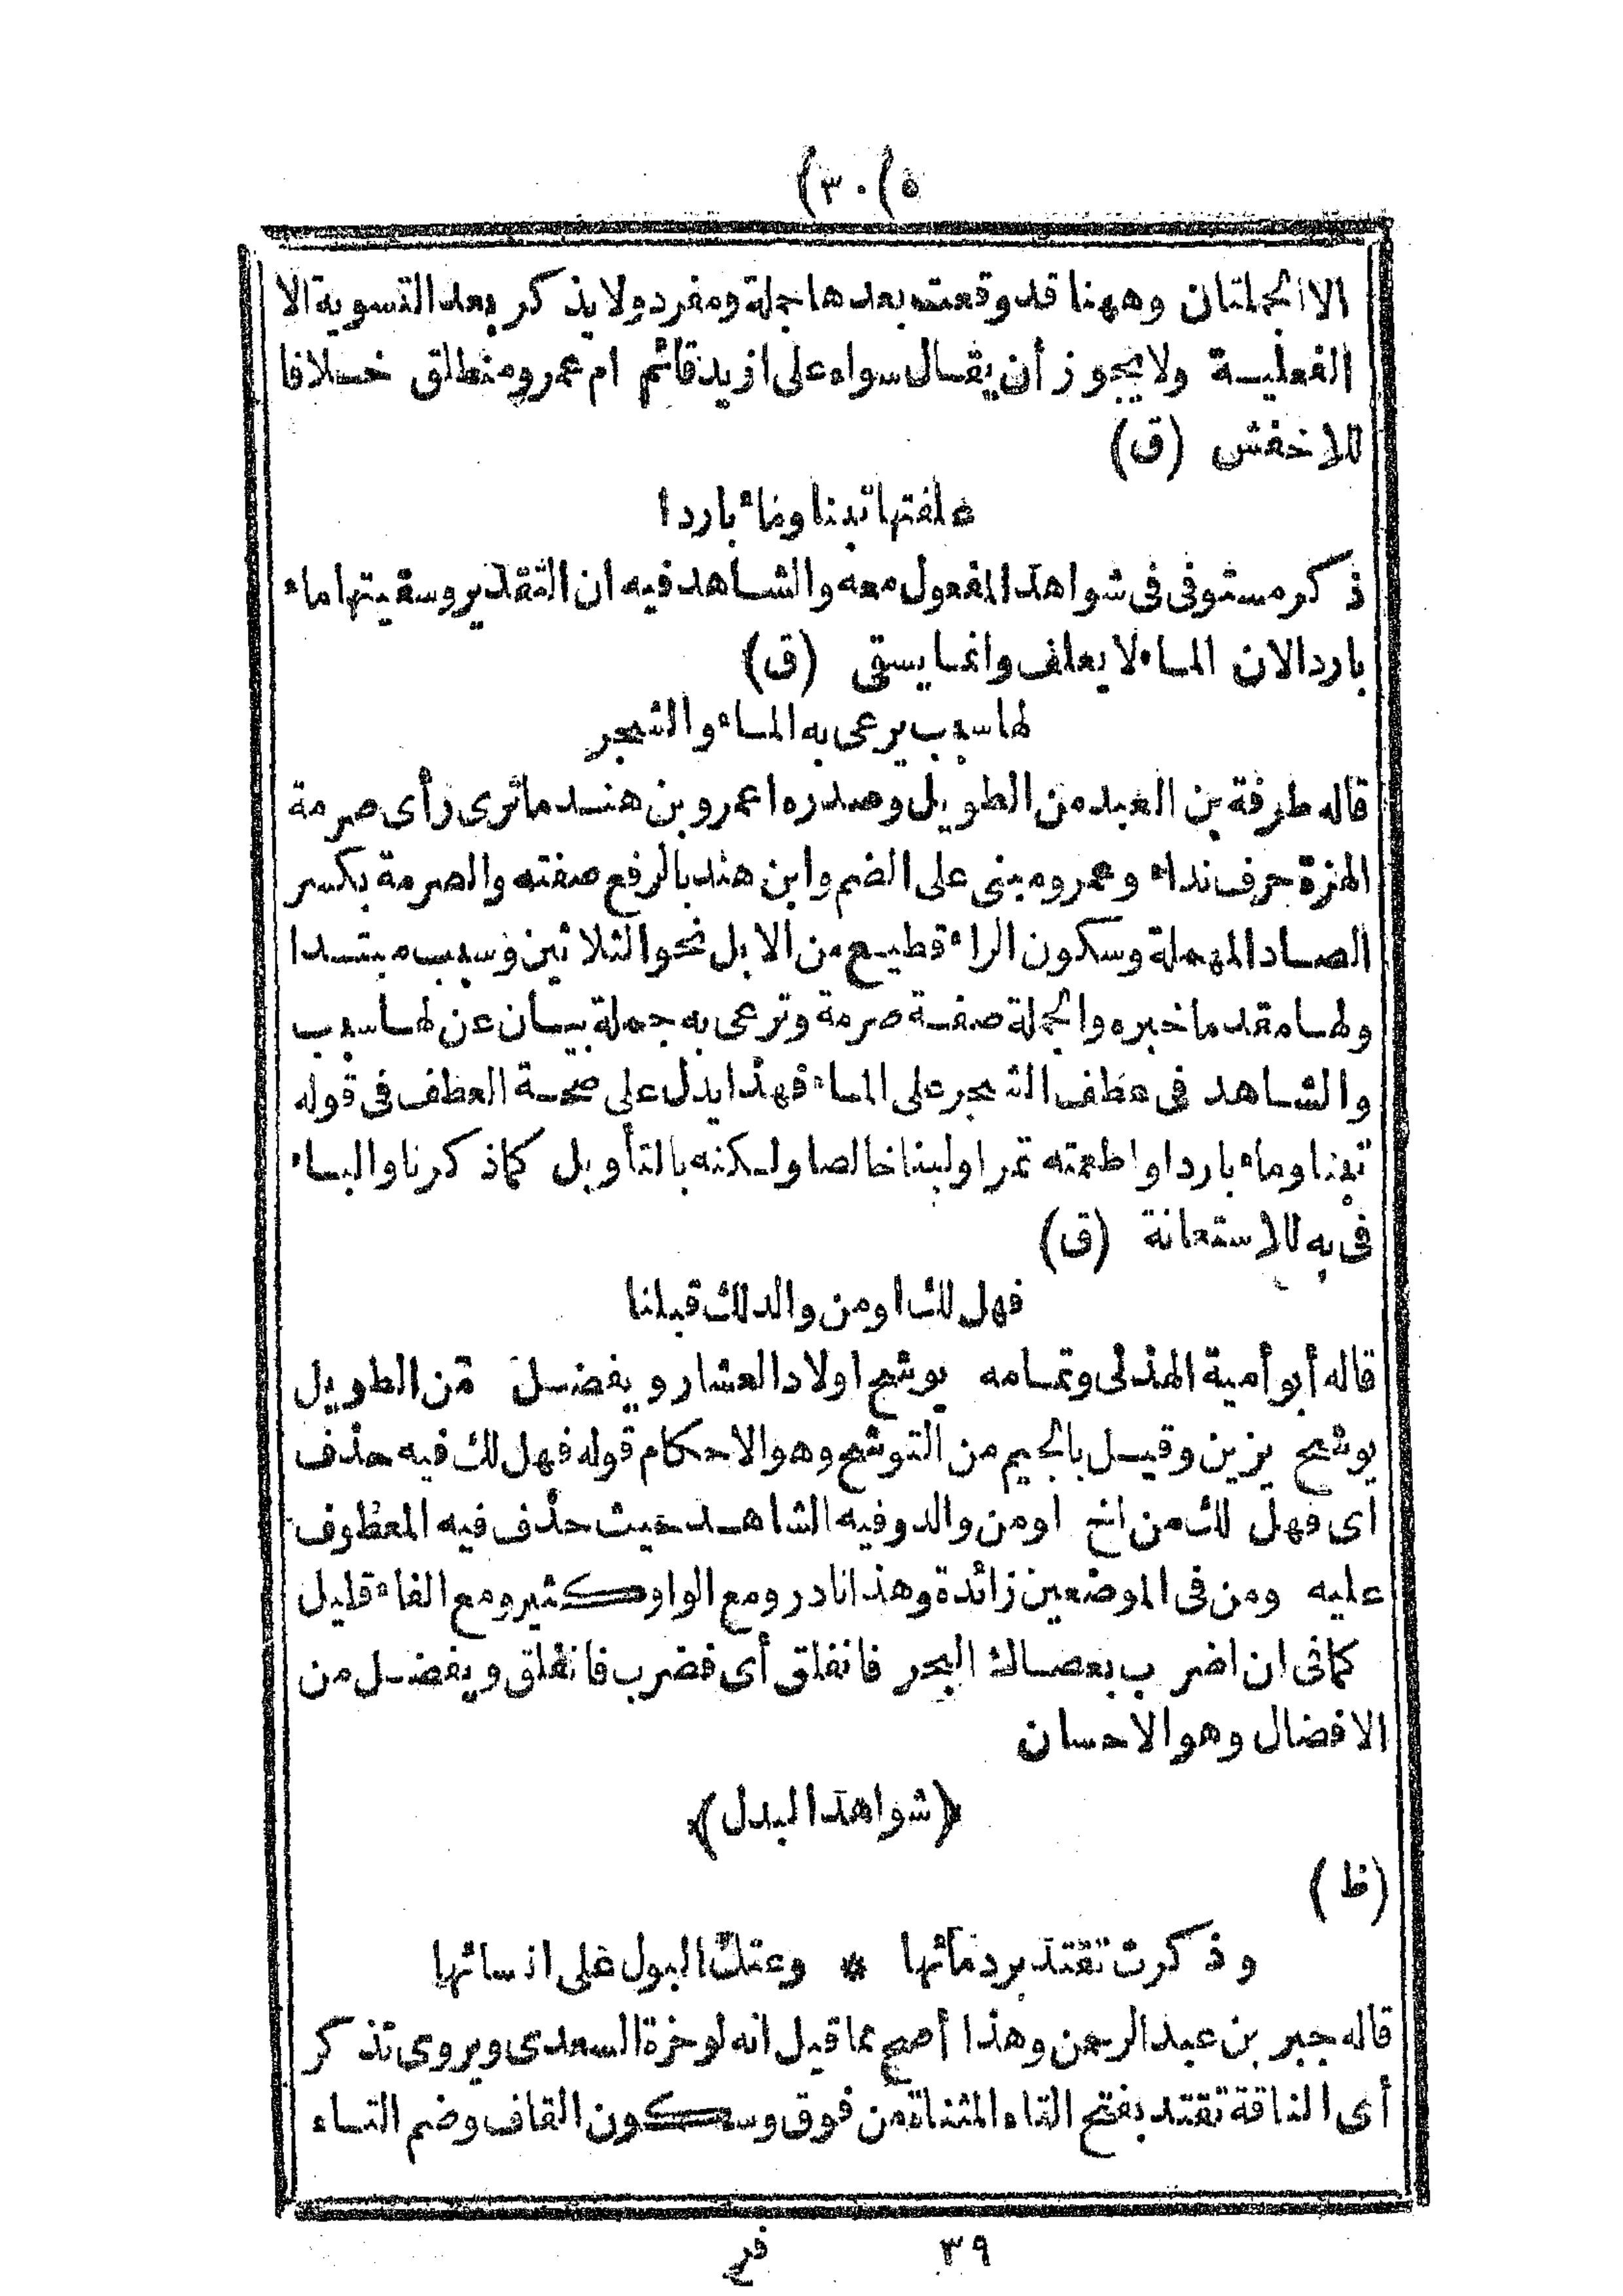 (٣٠٥)
الا الجملتان وههنا قد وقعت بعدها جملة ومفرد ولا يذكر بعد التسوية الا
الفعلية ولا يجوز أن يقال سواء على ازيد قائم ام عمرو منطلق خلافا
للاخفش (ق)
علفتها تبنا وماء باردا
ذكر مستوفى فى شواهد المفعول معه والشاهد فيه ان التقدير وسقيتها ماء
باردا لان الماء لا يعلف وانما يسقى (ق)
لها سبب يرعى به الماء والشجر
قاله طرفة بن العبد من الطويل وصدره اعمرو بن هند ما ترى رأى صرمة
الهمزة حرف نداء وعمرو مبنى على الضم وابن هند بالرفع صفته والصرمة بكسر
الصاد المهملة وسكون الراء قطيع من الابل نحو الثلاثين وسبب مبتدا
ولها مقدما خبره والجملة صفة صرمة وترعى به جملة بيان عن لها سبب
والشاهد فى عطف الشجر على الماء فهذا يدل على صحة العطف فى قوله
تبنا وماء باردا واطعمته تمرا ولبنا خالصا ولكنه بالتأويل كما ذكرنا والباء
فى به للاستعانة (ق)
فهل لك او من والد لك قبلنا
قاله أبو أمية الهذلى وتمامه يوشح اولاد العشار ويفضل من الطويل
يوشح يزين وقيل بالجيم من التوشج وهو الاحكام قوله فهل لك فيه حذف
اى فهل لك من اخ او من والد وفيه الشاهد حيث حذف فيه المعطوف
عليه ومن فى الموضعين زائدة وهذا نادر ومع الواو كثير ومع الفاء قليل
كما فى ان اضرب بعصاك البحر فانفلق أى فضرب فانفلق ويفضل من
الافضال وهو الاحسان
﴿شواهد البدل﴾
(ظ)
وذكرت تقتد برد مائها * وعتك البول على انسائها
قاله جبر بن عبد الرحمن وهذا أصح مما قيل انه لوخزة السعدى ويروى تذكر
أى الناقة تقتد بفتح التاء المثناة من فوق وسكون القاف وضم التاء
٣٩ فر